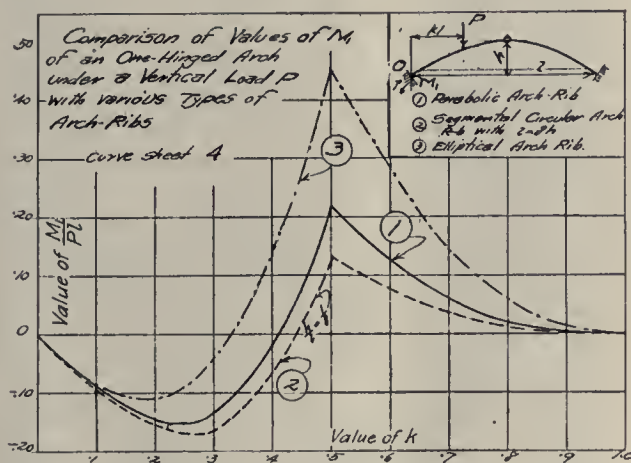 Comparison of Values of M₁
of an One-Hinged Arch
under a Vertical Load P
with various Types of
Arch-Ribs
Curve sheet 4
kl
P
h
l
O
M₁
① Parabolic Arch-Rib
② Segmental Circular Arch
Rib with l=8h
③ Elliptical Arch Rib.
Value of M₁/Pl
.50
.40
.30
.20
.10
0
-.10
-.20
③
①
②
Value of k
.1
.2
.3
.4
.5
.6
.7
.8
.9
1.0